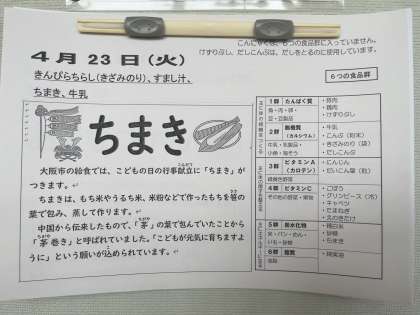 こんにゃくは、6つの食品群に入っていません。
けずりぶし、だしこんぶは、だしをとるのに使用しています。
4月23日(火)
きんぴらちらし(きざみのり)、すまし汁、
ちまき、牛乳
6つの食品群
ちまき
大阪市の給食では、こどもの日の行事献立に「ちまき」が
つきます。
ちまきは、もち米やうるち米、米粉などで作ったもちを笹の
葉で包み、蒸して作ります。
中国から伝来したもので、「茅」の葉で包んでいたことから
「茅巻き」と呼ばれていました。「こどもが元気に育ちますよ
うに」という願いが込められています。
1群 たんぱく質
魚・肉・卵・
豆・豆製品
・豚肉
・鶏肉
・けずりぶし
2群 無機質
(カルシウム)
牛乳・乳製品・
小魚・海そう
・牛乳
・こんぶ(粉末)
・きざみのり(袋)
・だしこんぶ
3群 ビタミンA
(カロテン)
緑黄色野菜
・にんじん
・だいこん葉(乾)
4群 ビタミンC
その他の野菜・果物
・ごぼう
・グリンピース(冷)
・キャベツ
・たまねぎ
・えのきたけ
5群 炭水化物
米・パン・めん・
いも・砂糖
・精白米
・砂糖
・ちまき
6群 脂質
油脂
・綿実油